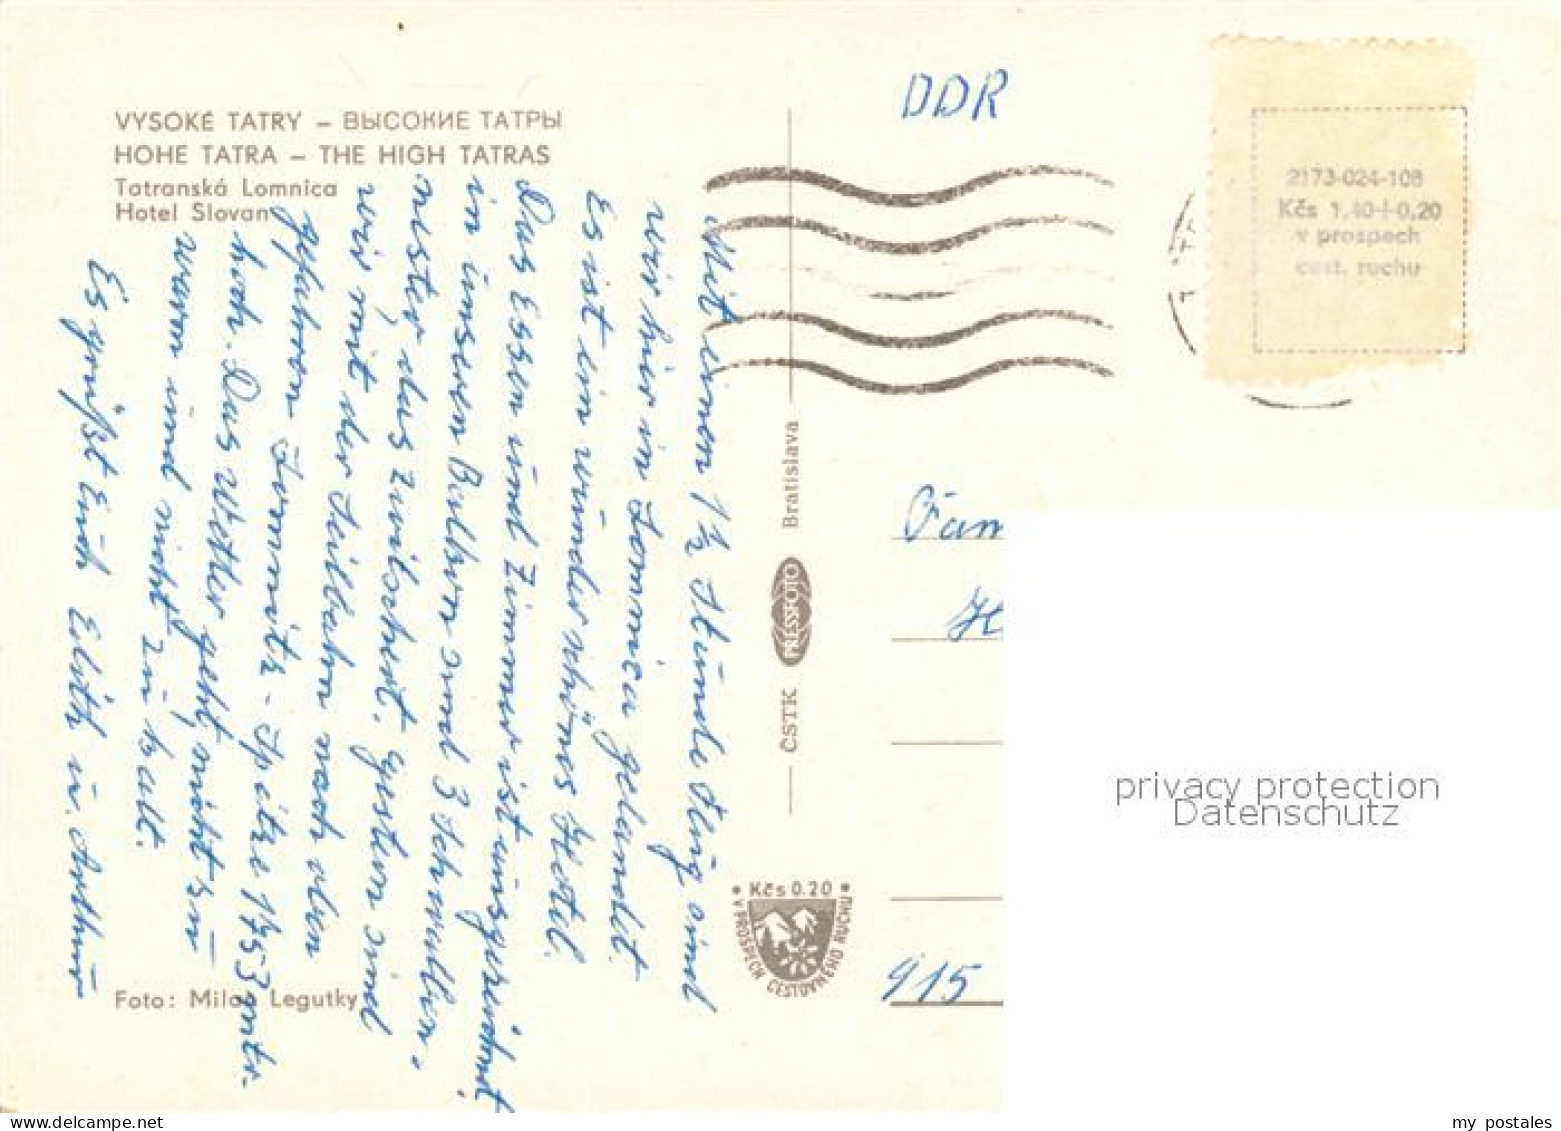 VYSOKÉ TATRY – ВЫСОКИЕ ТАТРЫ
HOHE TATRA – THE HIGH TATRAS
Tatranská Lomnica
Hotel Slovan
Mit einem 1½ Stunde Flug sind
wir hier in Lomnica gelandet.
Es ist ein wunderschönes Hotel.
Das Essen und Zimmer ist ausgezeichnet
in unseren Balkon sind 3 Schwalben-
nester, das zwitschert. Gestern sind
wir mit der Seilbahn nach oben
gefahren Lommnitz-Spitze 1753 mtr.
hoch. Das Wetter geht, nicht zu
warm und nicht zu kalt.
Es grüßt Euch Edith u. Arthur
Foto: Milan Legutky
ČSTK
PRESSFOTO
Bratislava
Kčs 0.20
V PROSPECH CESTOVNÉHO RUCHU
DDR
2173-024-108
Kčs 1,40+0,20
v prospech
cest. ruchu
Fam
H
915
privacy protection
Datenschutz
my postales